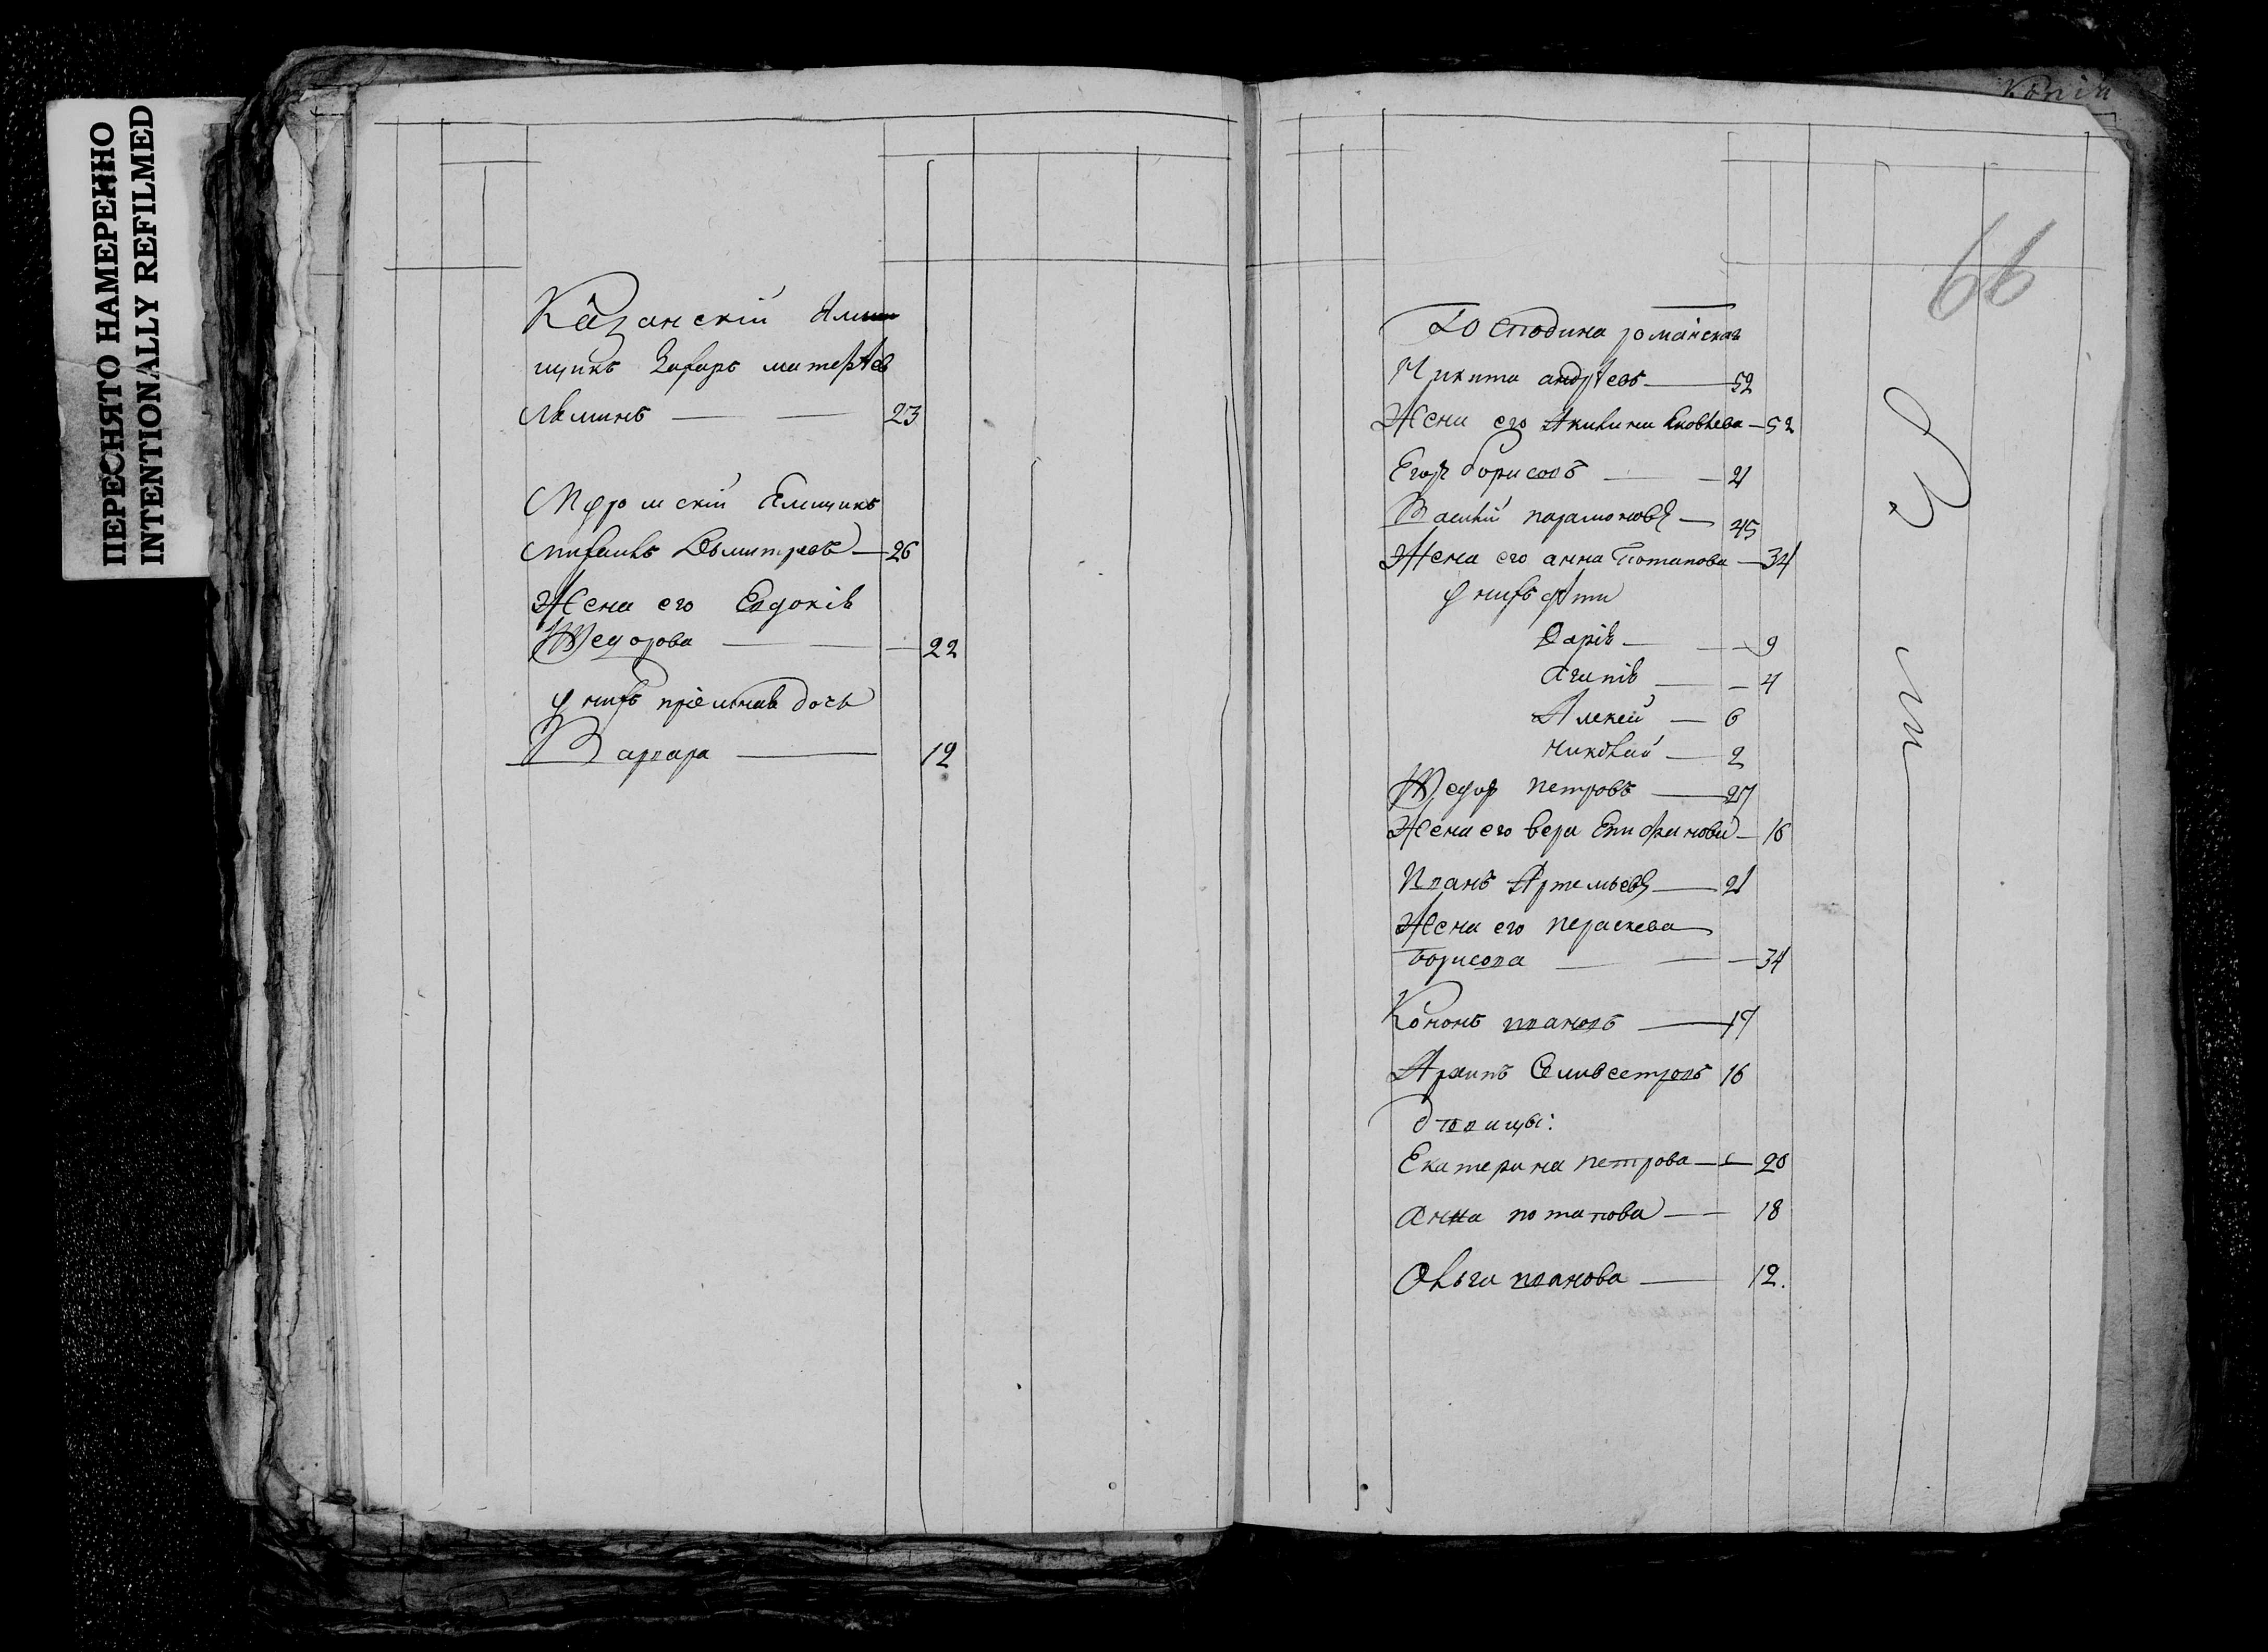 ПЕРЕСНЯТО НАМЕРЕННО
INTENTIONALLY REFILMED
Казанскій Ямщи
щикъ Захаръ матвѣев
Ляминъ — — 23
Муромскій Ямщикъ
михаилъ Дьмитревъ — 26
Жена его Евдокія
Ѳедорова — — — 22
у нихъ пріемная дочь
Варвара — 12
Копія
66
Господина романска
Никита андрѣевъ — 52
Жена его Акилина Яковлева — 52
Егор борисовъ — — 21
Василій парамоновъ — 45
Жена его анна Потапова — 34
у нихъ дѣти
Дарія — — 9
Агапія — — 4
Алекей — 6
николай — 2
Ѳедор петровъ — 27
Жена его вера Епифанова — 16
Иванъ Артемьевъ — 21
Жена его пераскева
борисова — — — 34
Кононъ ивановъ — 17
Архипъ Селивестровъ 16
дѣвицы:
Екатерина петрова — — 20
Анна потапова — — 18
Ольга иванова — 12.